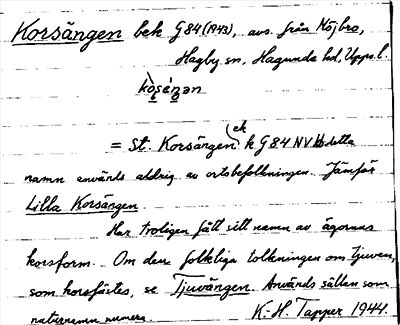 Korsängen bek G84 (1943), avs. från Nöjbro,
Hagby sn, Hagunda hd, Upps. l.
= St. Korsängen ek h G84 NV  detta
namn används aldrig av ortsbefolkningen. Jämför
Lilla Korsängen
Har troligen fått sitt namn av ägornas
korsform. Om den folkliga tolkningen om tjuven,
som korsfästes, se Tjuvängen. Används sällan som
naturnamn numera. K.-H. Tapper 1944.